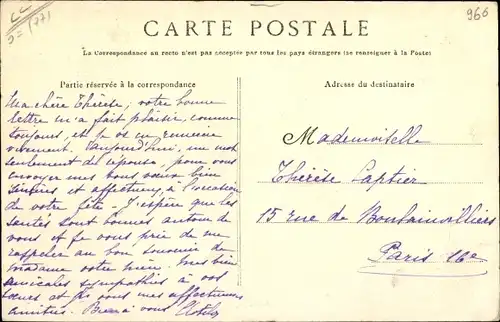 966
CARTE POSTALE
La Correspondance au recto n'est pas acceptée par tous les pays étrangers (se renseigner à la Poste)
Partie réservée à la correspondance
Ma chère Thérèse, votre bonne
lettre m'a fait plaisir, comme
toujours, et je vs en remercie
vivement. Aujourd'hui, un mot
seulement de réponse, pour vous
envoyer mes bons vœux bien
sincères et affectueux, à l'occasion
de votre fête - J'espère que les
santés sont bonnes autour de
vous et je vous prie de me
rappeler au bon souvenir de
madame votre mère. Mes bien
amicales sympathies à vos
sœurs et pr vous mes affectueuses
amitiés. Bien à vous Clotilde
Adresse du destinataire
Mademoiselle
Thérèse
15 rue de Boulainvilliers
Paris 16e